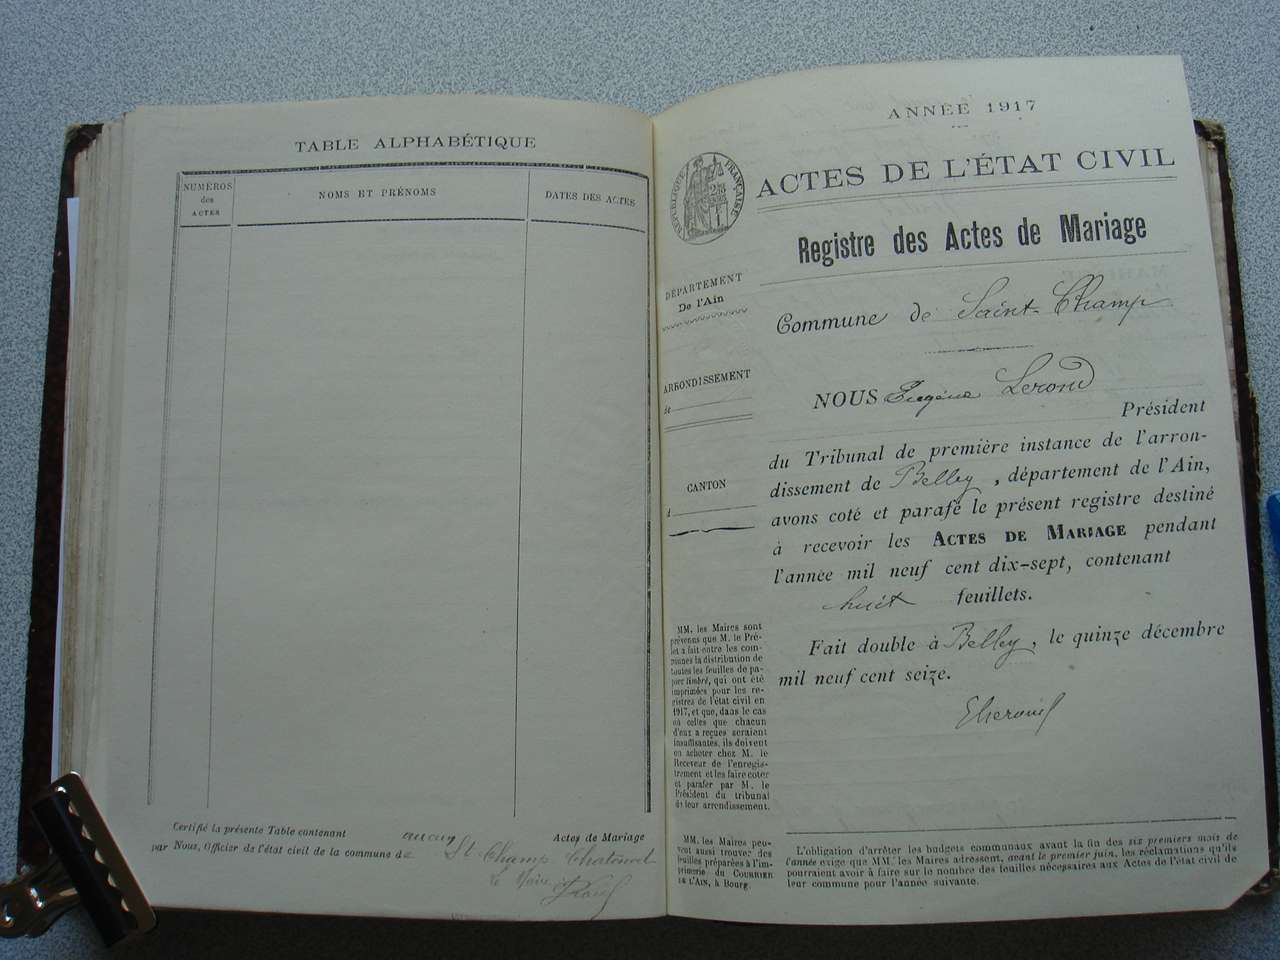 TABLE ALPHABÉTIQUE
NUMÉROS
des
ACTES
NOMS ET PRÉNOMS
DATES DES ACTES
Certifié la présente Table contenant aucun Actes de Mariage
par Nous, Officier de l'état civil de la commune de St Champ-Chatonod
Le Maire
ANNÉE 1917
RÉPUBLIQUE FRANÇAISE
ACTES DE L'ÉTAT CIVIL
Registre des Actes de Mariage
DÉPARTEMENT
De l'Ain
ARRONDISSEMENT
de
CANTON
d
Commune de Saint-Champ
NOUS Eugène Lerond
Président
du Tribunal de première instance de l'arron-
dissement de Belley, département de l'Ain,
avons coté et parafé le présent registre destiné
à recevoir les ACTES DE MARIAGE pendant
l'année mil neuf cent dix-sept, contenant
huit feuillets.
Fait double à Belley, le quinze décembre
mil neuf cent seize.
MM. les Maires sont
prévenus que M. le Pré-
fet a fait entre les com-
munes la distribution de
toutes les feuilles de pa-
pier timbré, qui ont été
imprimées pour les re-
gistres de l'état civil en
1917, et que, dans le cas
où celles que chacun
d'eux a reçues seraient
insuffisantes, ils doivent
en acheter chez M. le
Receveur de l'enregis-
trement et les faire coter
et parafer par M. le
Président du tribunal
de leur arrondissement.
MM. les Maires peu-
vent aussi trouver des
feuilles préparées à l'im-
primerie du COURRIER
DE L'AIN, à Bourg.
L'obligation d'arrêter les budgets communaux avant la fin des six premiers mois de
l'année exige que MM. les Maires adressent, avant le premier juin, les réclamations qu'ils
pourraient avoir à faire sur le nombre des feuilles nécessaires aux Actes de l'état civil de
leur commune pour l'année suivante.